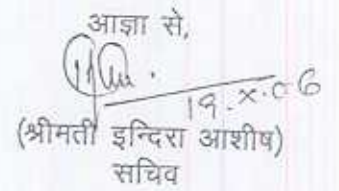 आज्ञा से,
19.x.06
(श्रीमती इन्दिरा आशीष)
सचिव